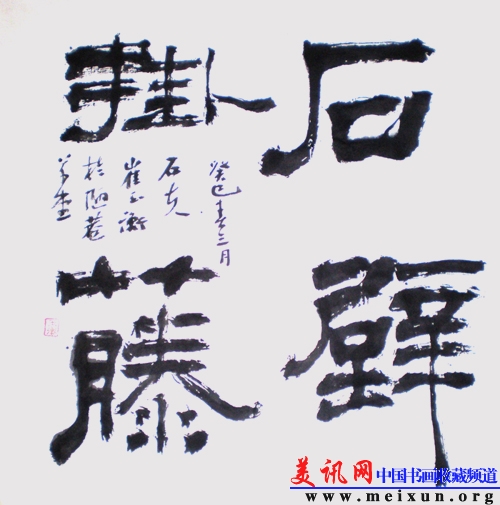 石壁
掛藤
癸巳春三月
石夫
崔 衡
於陋菴
美讯网 中国书画收藏频道
www.meixun.org